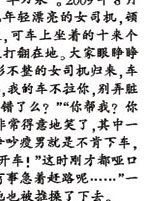 。2009年8月
年轻漂亮的女司机,颇
可车上坐着的十来个
打翻在地。大家眼睁睁
不整的女司机归来,车
,我的车不拉你,别弄脏
错了么?”“你帮我?你
非常得意地笑了,其中一
疫男就是不肯下车,
开车!”这时刚才都哑口
有事急着赶路呢……”一
也被推搡了下去。